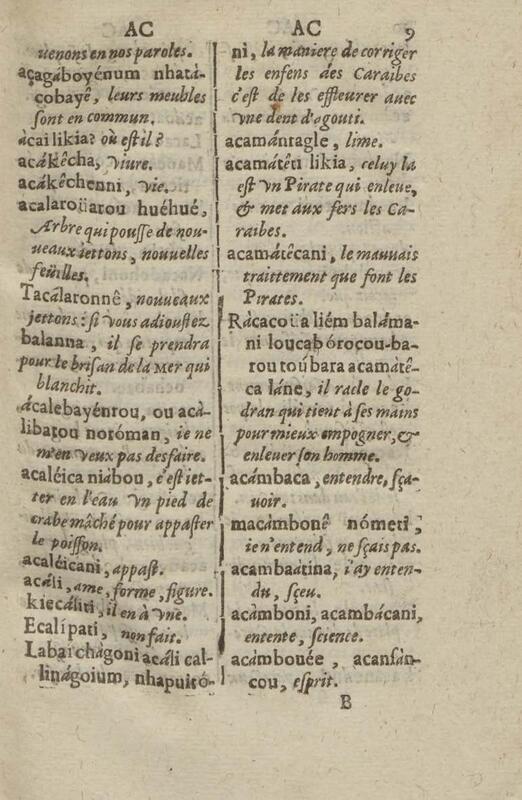 AC
uenons en nos paroles.
açagáboyénum nhatà-
çobayê, leurs meubles
sont en commun.
àcai likia? où est il?
acákêcha, viure.
acákêchenni, vie.
acalaroüatou huéhué,
Arbre qui pousse de nou-
ueaux iettons, nouuelles
feüilles.
Tacálaronnê, nouueaux
jettons: si vous adioustez
balanna, il se prendra
pour le brisan de la Mer qui
blanchit.
ácalebayéntou, ou acà-
libatou notóman, ie ne
m'en veux pas desfaire.
acaléica niábou, c'est iet-
ter en l'eau vn pied de
crabe mâché pour appaster
le poisson.
acaléicani, appast.
acáli, ame, forme, figure.
kiecáliti, il en à vne.
Ecalípati, non fait.
Labaichàgoni acáli cal-
linágoium, nhapuitó-
AC 9
ni, la maniere de corriger
les enfens des Caraibes
c'est de les effleurer auec
vne dent d'agouti.
acamántagle, lime.
acamátêti likia, celuy la
est vn Pirate qui enleue,
& met aux fers les Ca-
raibes.
acamátêcani, le mauuais
traittement que font les
Pirates.
Ràcacoüa liém baláma-
ni loucabórocou-ba-
rou toúbara acamátê-
ca láne, il racle le go-
dran qui tient à ses mains
pour mieux empogner, &
enleuer son homme.
acámbaca, entendre, sça-
uoir.
macàmbonê nómeti,
ie n'entend, ne sçais pas.
acambaátina, i'ay enten-
du, sçeu.
acàmboni, acambácani,
entente, science.
acàmbouée, acansán-
cou, esprit.
B